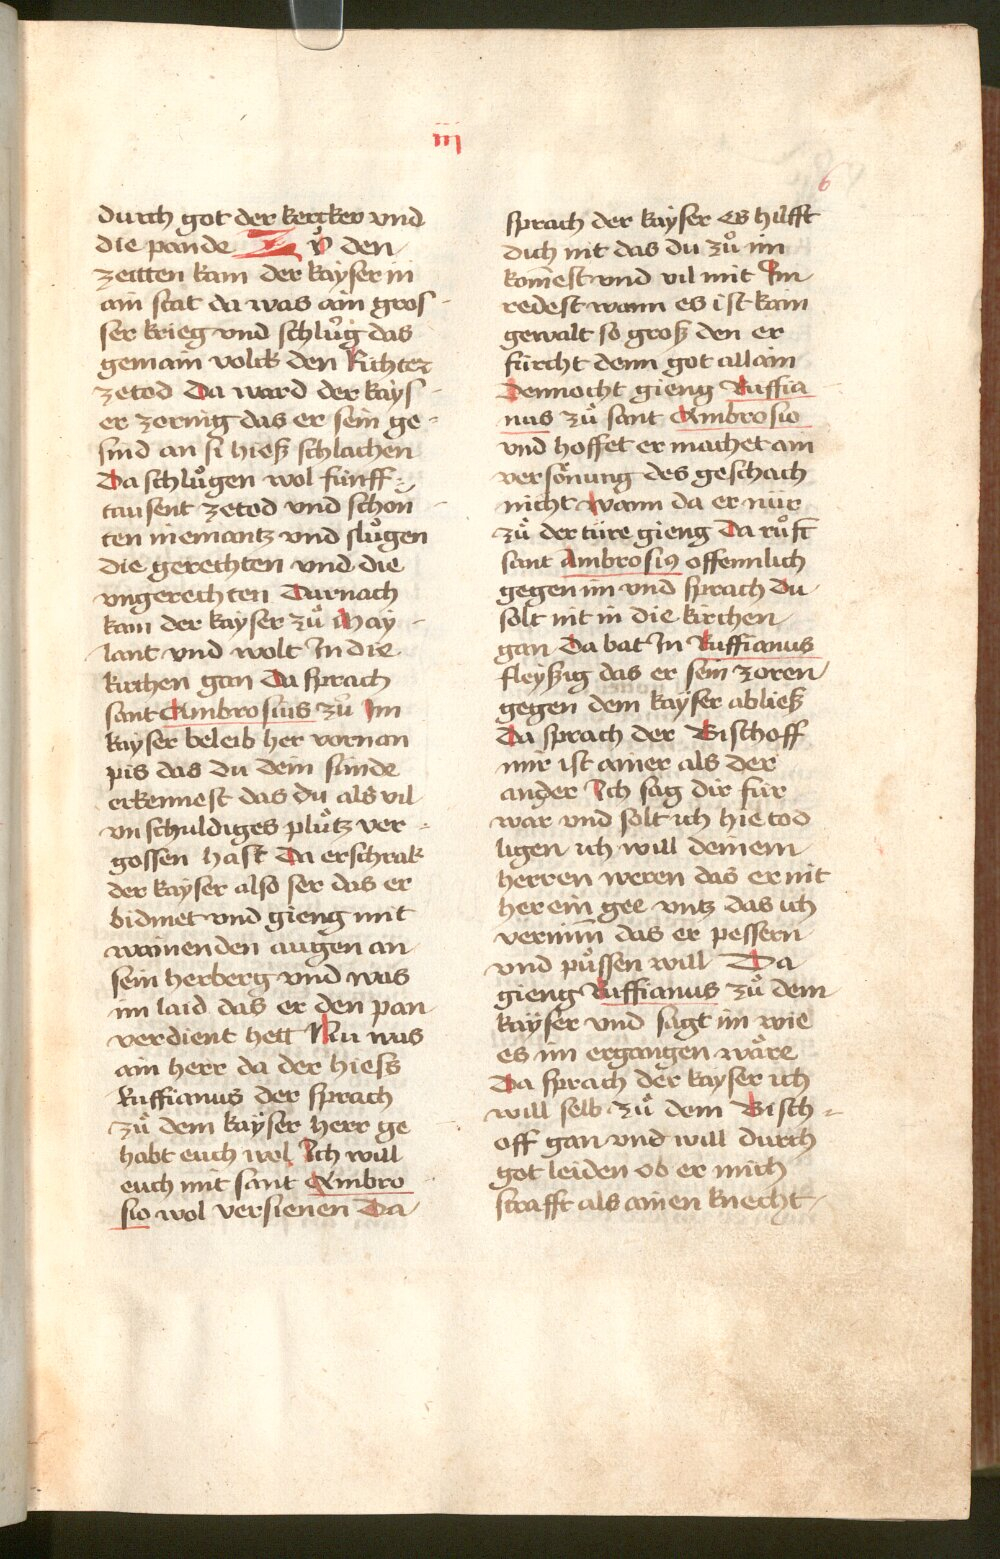 iij
6
durch got der kercker vnd
die pande Zů den
zeitten kam der kayser in
ain stat da was ain gros-
ser krieg vnd schlůg das
gemain volck den Richter
zetod Da ward der kays-
er zornig das er sein ge-
sind an si hieß schlachen
Da schlůgen wol fünff-
tausent zetod vnd schon
ten niemantz vnd slůgen
die gerechten vnd die
vngerechten Darnach
kam der kayser zů May-
lant vnd wolt In die
kirchen gan Da sprach
sant Ambrosius zů Im
kayser beleib her vornan
pis das du dein sünde
erkennest das du als vil
vnschuldiges plůtz ver-
gossen hast Da erschrak
der kayser also ser das er
bidmet vnd gieng mit
wainenden augen an
sein herberg vnd was
im laid das er den pan
verdient hett Nu was
ain herr da der hiess
Ruffianus der sprach
zů dem kayser herr ge
habt euch wol Ich will
euch mit sant Ambro
sio wol versienen Da
sprach der kayser es hilfft
dich nit das du zů im
kom̄est vnd vil mit Im
redest wann es ist kain
gewalt so groß den er
fürcht denn got allain
Dennocht gieng Ruffia
nus zů sant Ambrosio
vnd hoffet er machet ain
versönung des geschach
nicht wann da er nür
zů der türe gieng Da růft
sant Ambrosius offennlich
gegen im vnd sprach Du
solt nit in die kirchen
gan Da bat In Ruffianus
fleyßig das er sein zoren
gegen dem kayser abließ
Da sprach der Bischoff
mir ist ainer als der
ander Ich sag dir für
war vnd solt ich hie tod
ligen ich will deinem
herren weren das er nit
her ein gee vntz das ich
vernim̄ das er pessern
vnd půssen will Da
gieng Ruffianus zů dem
kayser vnd sagt im wie
es im ergangen wäre
Da sprach der kayser ich
will selb zů dem Bisch-
off gan vnd will durch
got leiden ob er mich
strafft als ainen knecht